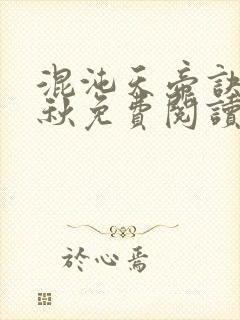 混沌天帝訣
秋免費閱讀
於心焉